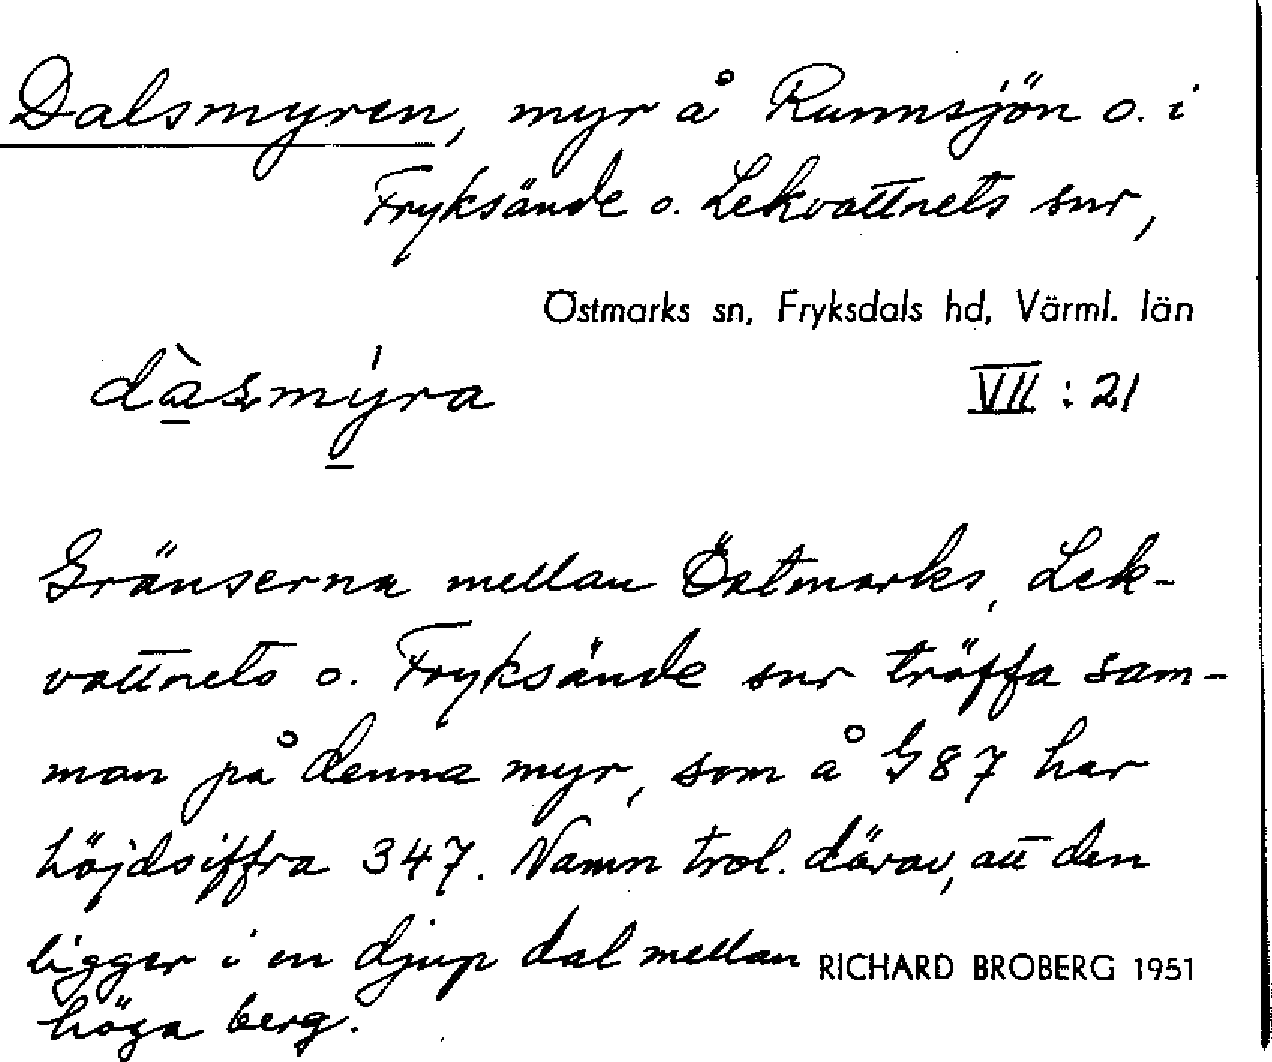 Dalsmyren, myr å Runnsjön o. i
Fryksände o. Lekvattnets snr,
Östmarks sn, Fryksdals hd, Värml. län
dàsmýra
VII : 21
Gränserna mellan Östmarks, Lek-
vattnets o. Fryksände snr träffa sam-
man på denna myr, som å G 87 har
höjdsiffra 347. Namn trol. därav, att den
ligger i en djup dal mellan
RICHARD BROBERG 1951
höga berg.